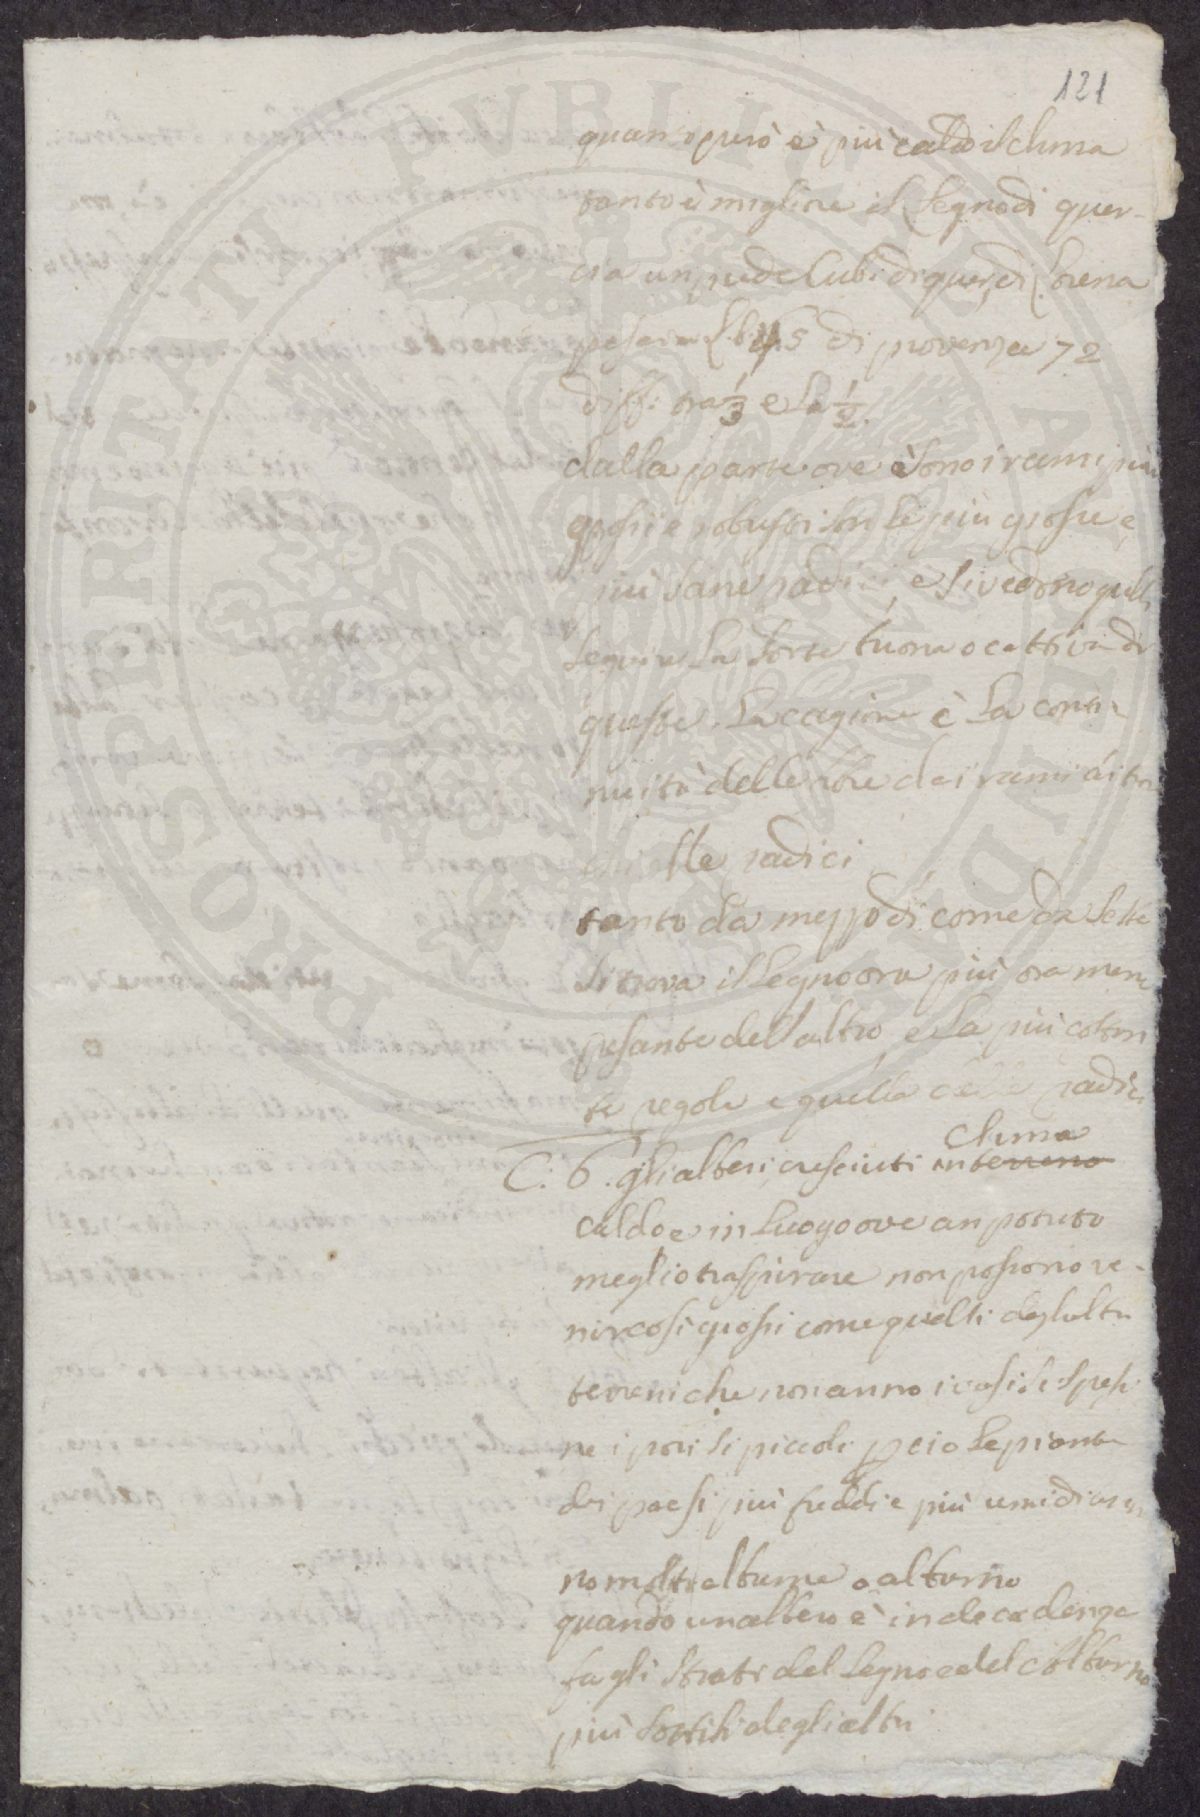 121
quanto però è più caldo il clima
tanto è migliore il Legno di quer-
cia un piede Cubi di querc di Lorena
pesava Lb 45 di provenza 72
diff: tra 1/3 e la 1/2.
dalla parte ove sono i rami più
grossi e robusti son le più grosse e
più sane radici, e si vedono quelli
seguire La sorte buona o cattiva di
queste. La cagione è La conti
nuità delle fibre dai rami ai tron
chi alle radici
tanto da mezzodì come da sette
si trova il Legno ora più ora men
pesante dell'altro, e La più costan
te regola e quella delle radici
C. 6. gli alberi cresciuti in terreno clima
caldo e in Luogo ove an potuto
meglio traspirare non possono ve-
nir così grossi come quelli degl'altri
terreni che non anno i vasi si spessi
ne i pori si piccoli pcio Le piante
dei paesi più freddi e più umidi an
no molto albume o alburno
quando un albero è in decadenza
fa gli strati del Legno e del alburno
più sottili degli altri
PROSPERITATI PVBLICAE AVGENDAE